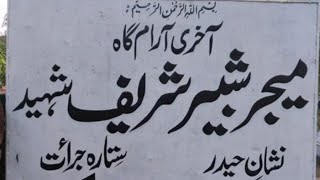 بِسْمِ اللهِ الرَّحْمٰنِ الرَّحِيْمِ
آخری آرام گاہ
میجر شبیر شریف شہید
نشانِ حیدر ستارہ جرائت